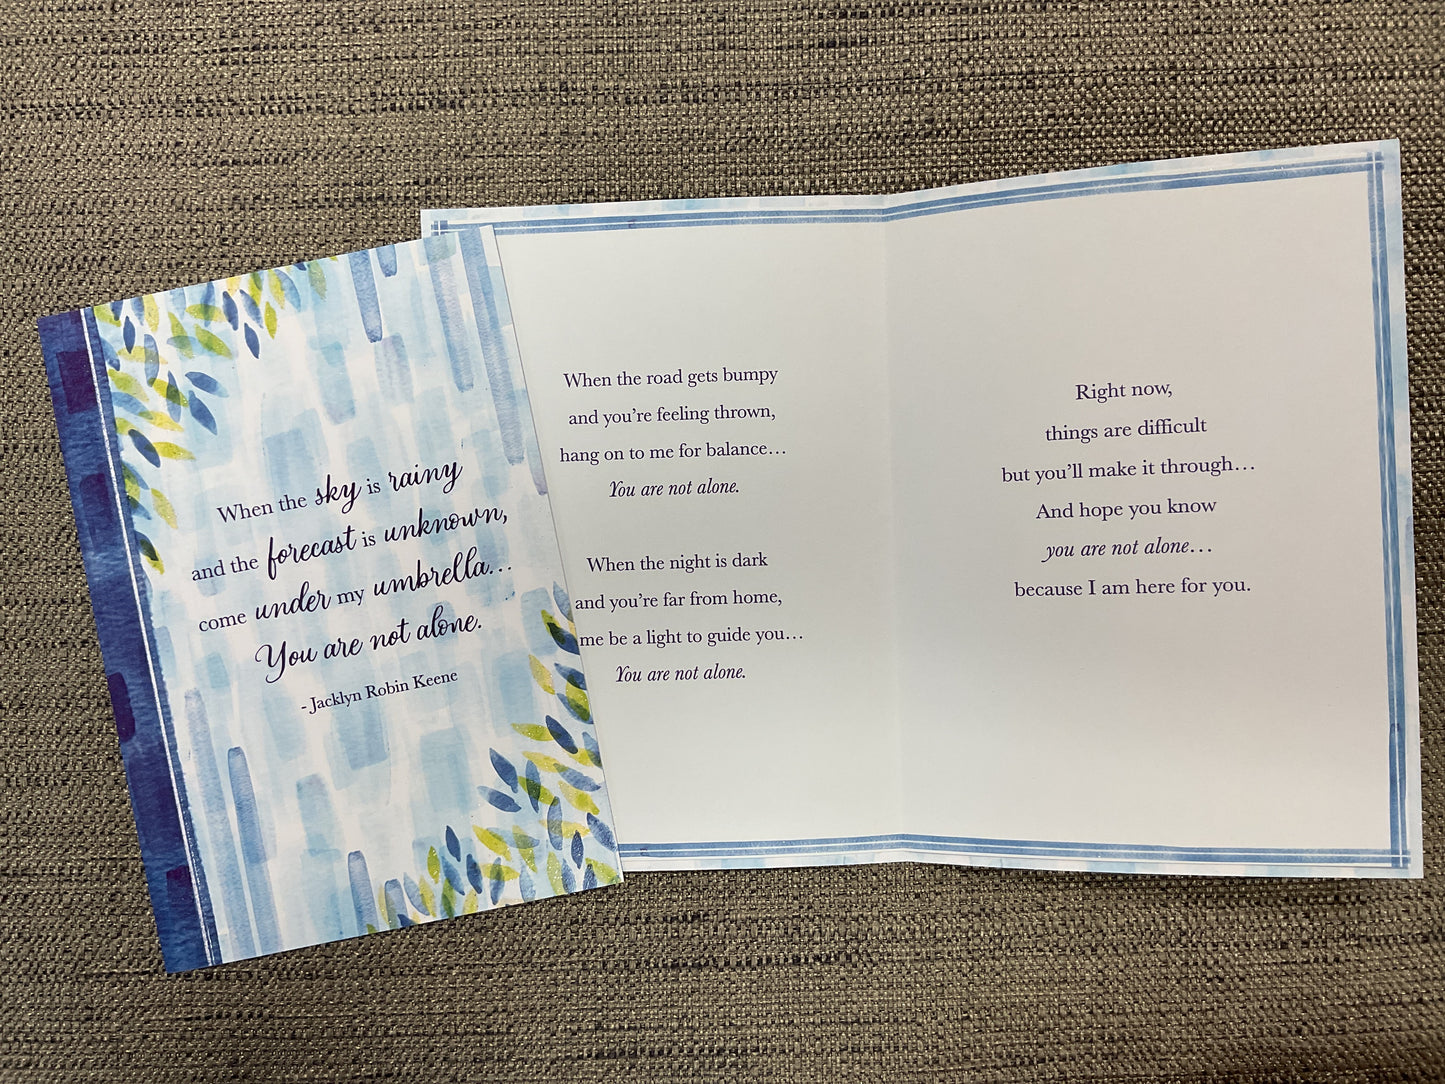 When the sky is rainy
and the forecast is unknown,
come under my umbrella...
You are not alone.
- Jacklyn Robin Keene
When the road gets bumpy
and you're feeling thrown,
hang on to me for balance...
You are not alone.
When the night is dark
and you're far from home,
me be a light to guide you...
You are not alone.
Right now,
things are difficult
but you'll make it through...
And hope you know
you are not alone...
because I am here for you.